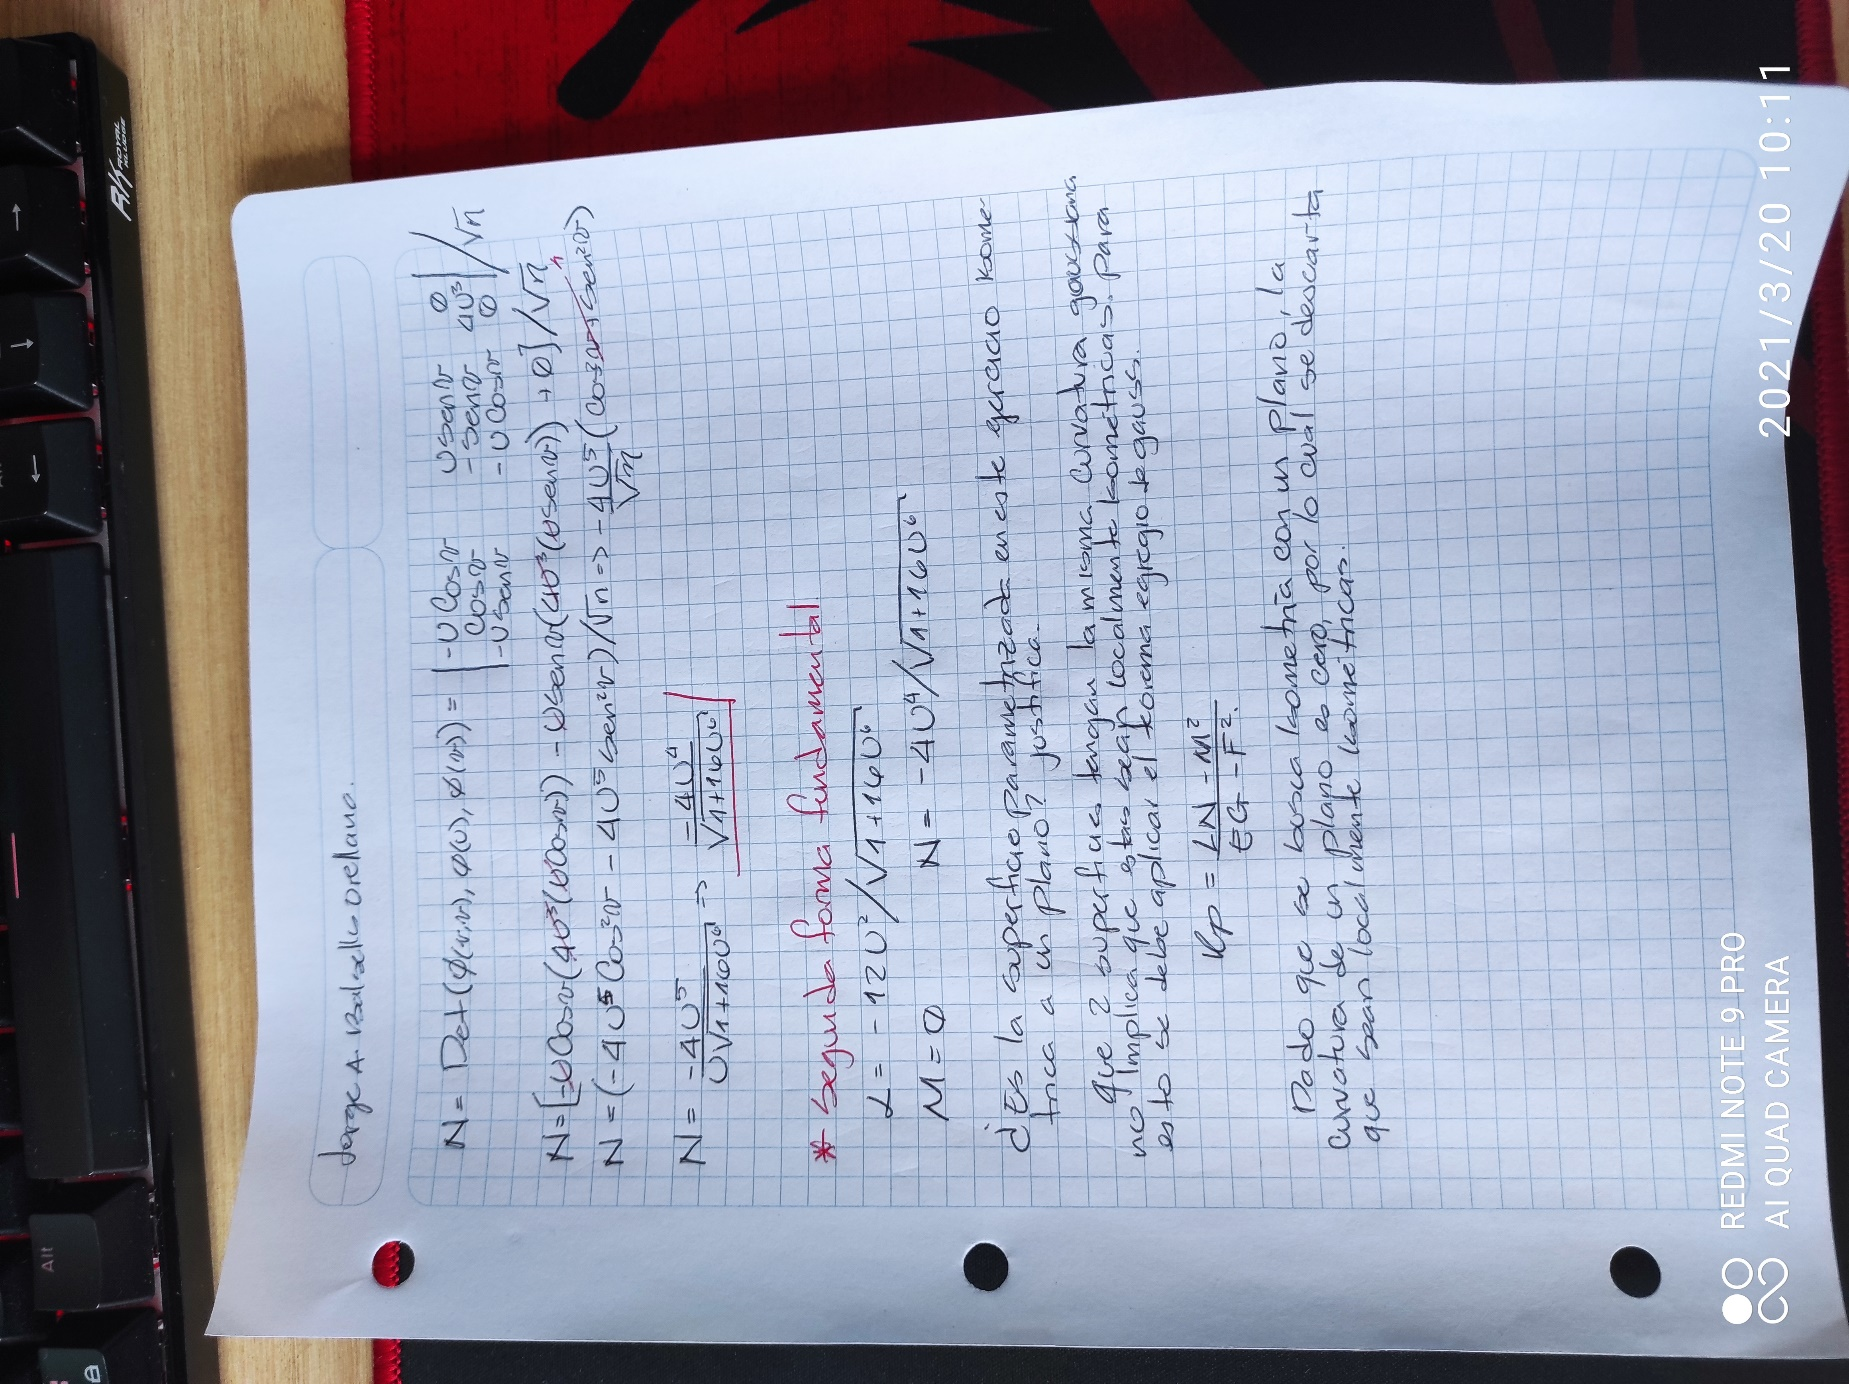 Jorge A. Balsells Orellana.
N = Det(ϕ(v,v), ϕ(u), ϕ(v)) = | -U Cos v   U sen v   0 |
| Cos v   - sen v   4U³ | / √n
| -U sen v   - U Cos v   0 |
N = [-U Cos v (4U³(U Cos v)) - U sen v (4U³(U sen v)) + 0] / √n
N = (-4U⁵ Cos² v - 4U⁵ sen² v) / √n => -4U⁵/√n (Cos² v + sen² v) 1
N = -4U⁵ / U√1+16U⁶ => -4U⁴ / √1+16U⁶
* Segunda forma fundamental
L = -12U² / √1+16U⁶
M = 0   N = -4U⁴ / √1+16U⁶
¿Es la superficie parametrizada en este ejercicio isome-
trica a un plano? justifica.
que 2 superficies tengan la misma curvatura gaussiana
no implica que estas sean localmente isometricas. para
esto se debe aplicar el teorema egregio de gauss.
Kp = LN - M² / EG - F².
Dado que se busca isometría con un plano, la
curvatura de un plano es cero, por lo cual se descarta
que sean localmente isométricas.
RK ROYAL KLUDGE
Alt
REDMI NOTE 9 PRO
AI QUAD CAMERA
2021/3/20 10:11